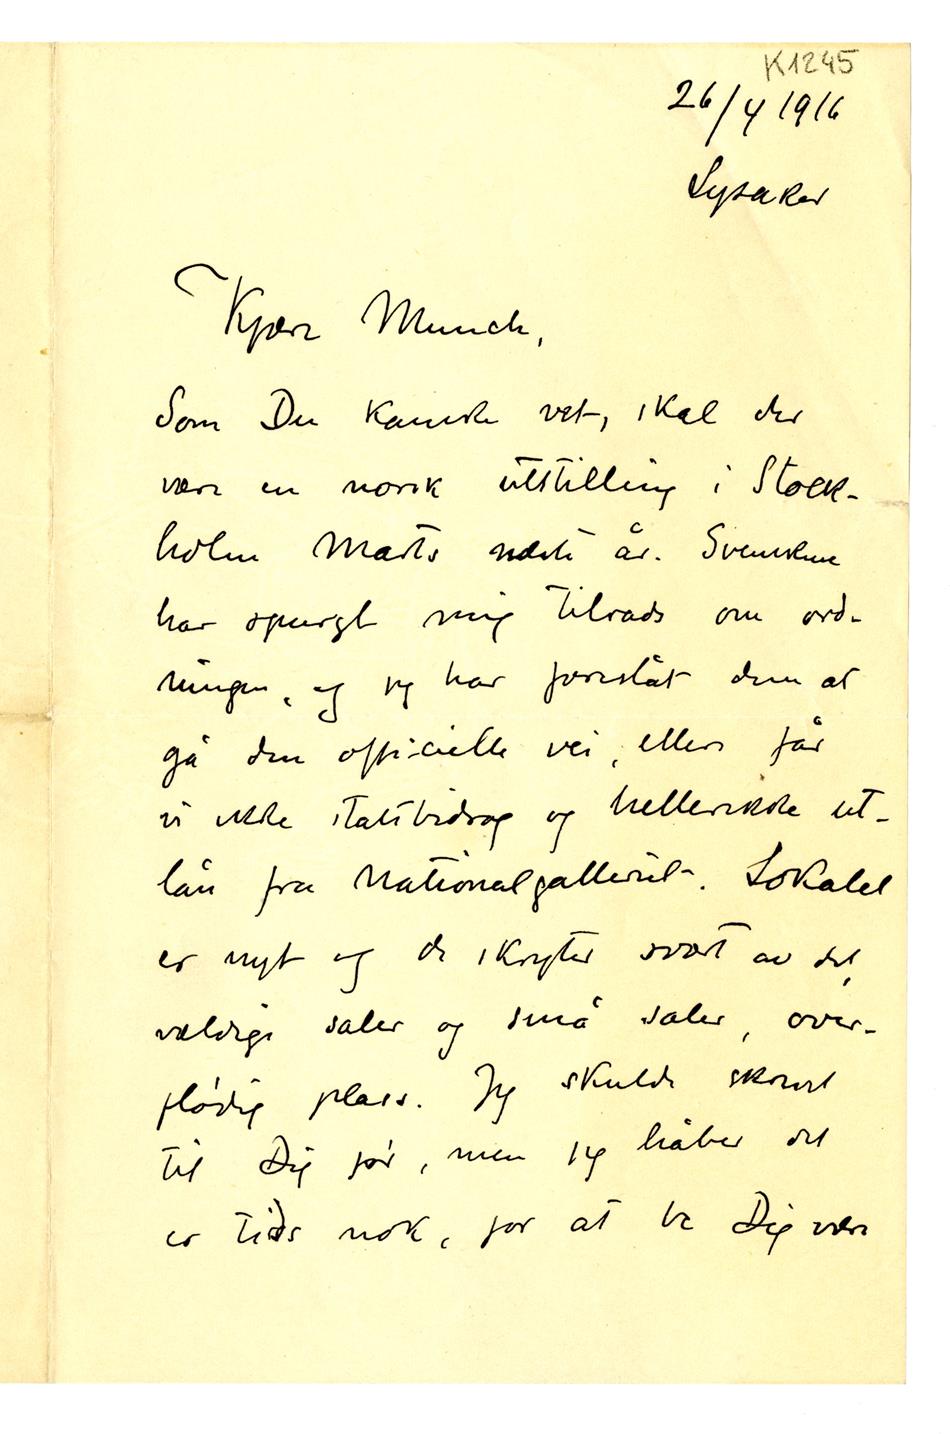 K1245
26/4 1916
Lysaker
Kjære Munch,
Som Du kanske vet, skal der
være en norsk utstilling i Stock-
holm Marts næste år. Svenskene
har spurgt mig tilråds om ord-
ningen, og jeg har foreslåt dem at
gå den officielle vei, ellers får
vi ikke statsbidrag og hellerikke ut-
lån fra Nationalgalleriet. Lokalet
er nyt og de skryter svært av det,
vældige saler og små saler, over-
flødig plass. Jeg skulde skrevet
til Dig før, men jeg håber det
er tids nok, for at be Dig være